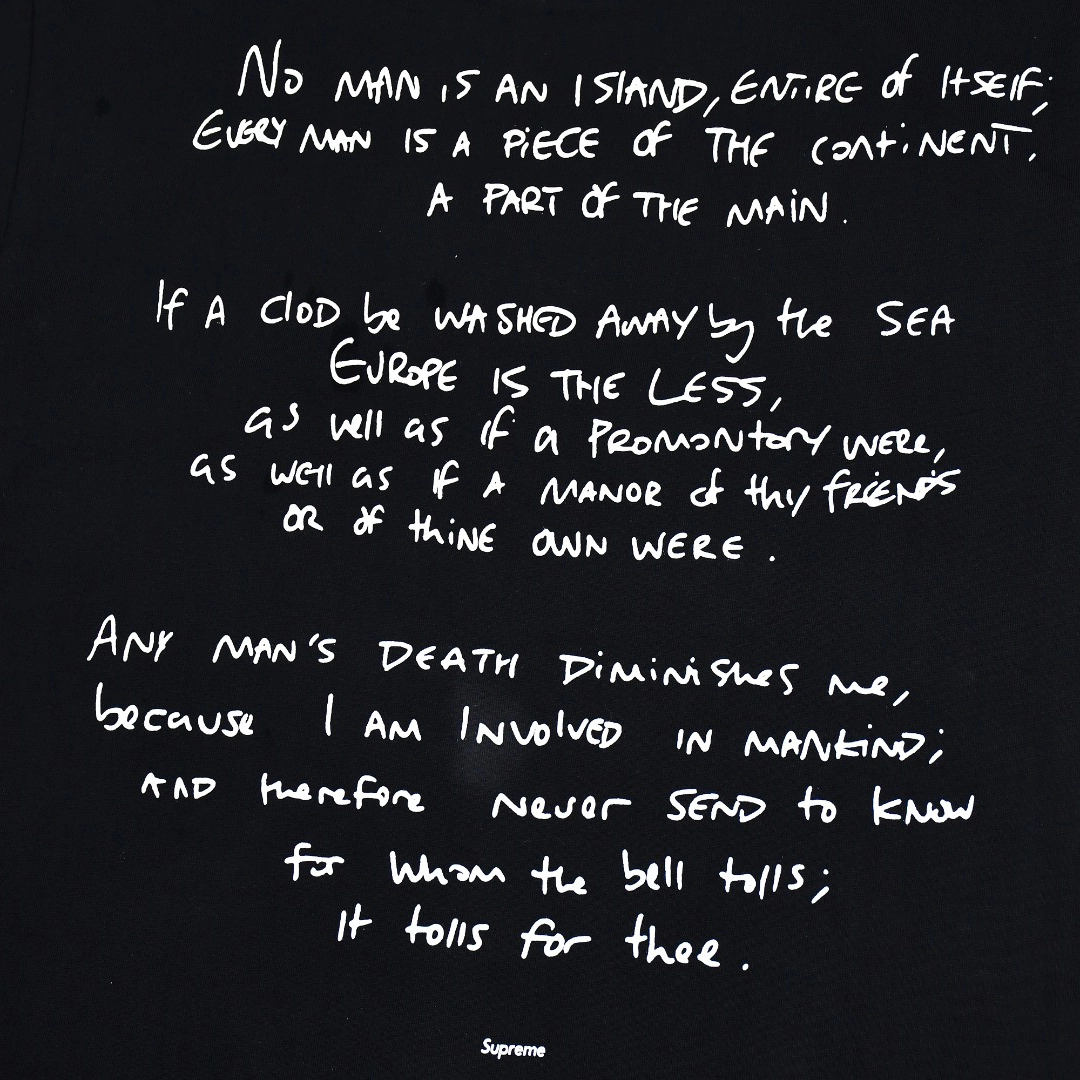 No MAN IS AN ISlAND, ENTiRE of ItSElF;
EVERY MAN IS A PiECE of THE contiNENT.
A PART Of THE MAiN.
If A ClOD be WASHED AWAY by the SEA
EUROPE IS THE LESS,
as well as if a PROMontoRY WERE,
as wEll as If A MANOR of thy fRiENDS
OR of thiNE OWN WERE.
ANY MAN'S DEATH DiMiNiShes me,
because I AM INVolvED IN MANKiND;
AND therefore Never SEND to KNOW
for whom the bell tolls;
It tolls for thee.
Supreme